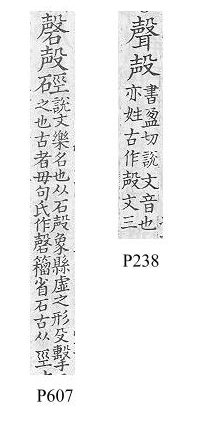 聲殸
書盈切說文音也
亦姓古作殸文三
P238
磬殸硜
說文樂石也从石殸象縣虡之形殳擊
之也古者毋句氏作磬籀省石古从巠
P607